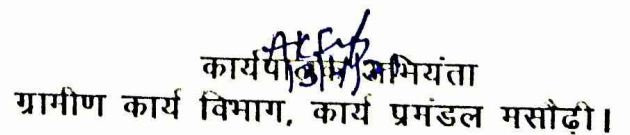 कार्यपालक अभियंता
ग्रामीण कार्य विभाग, कार्य प्रमंडल मसौढ़ी।